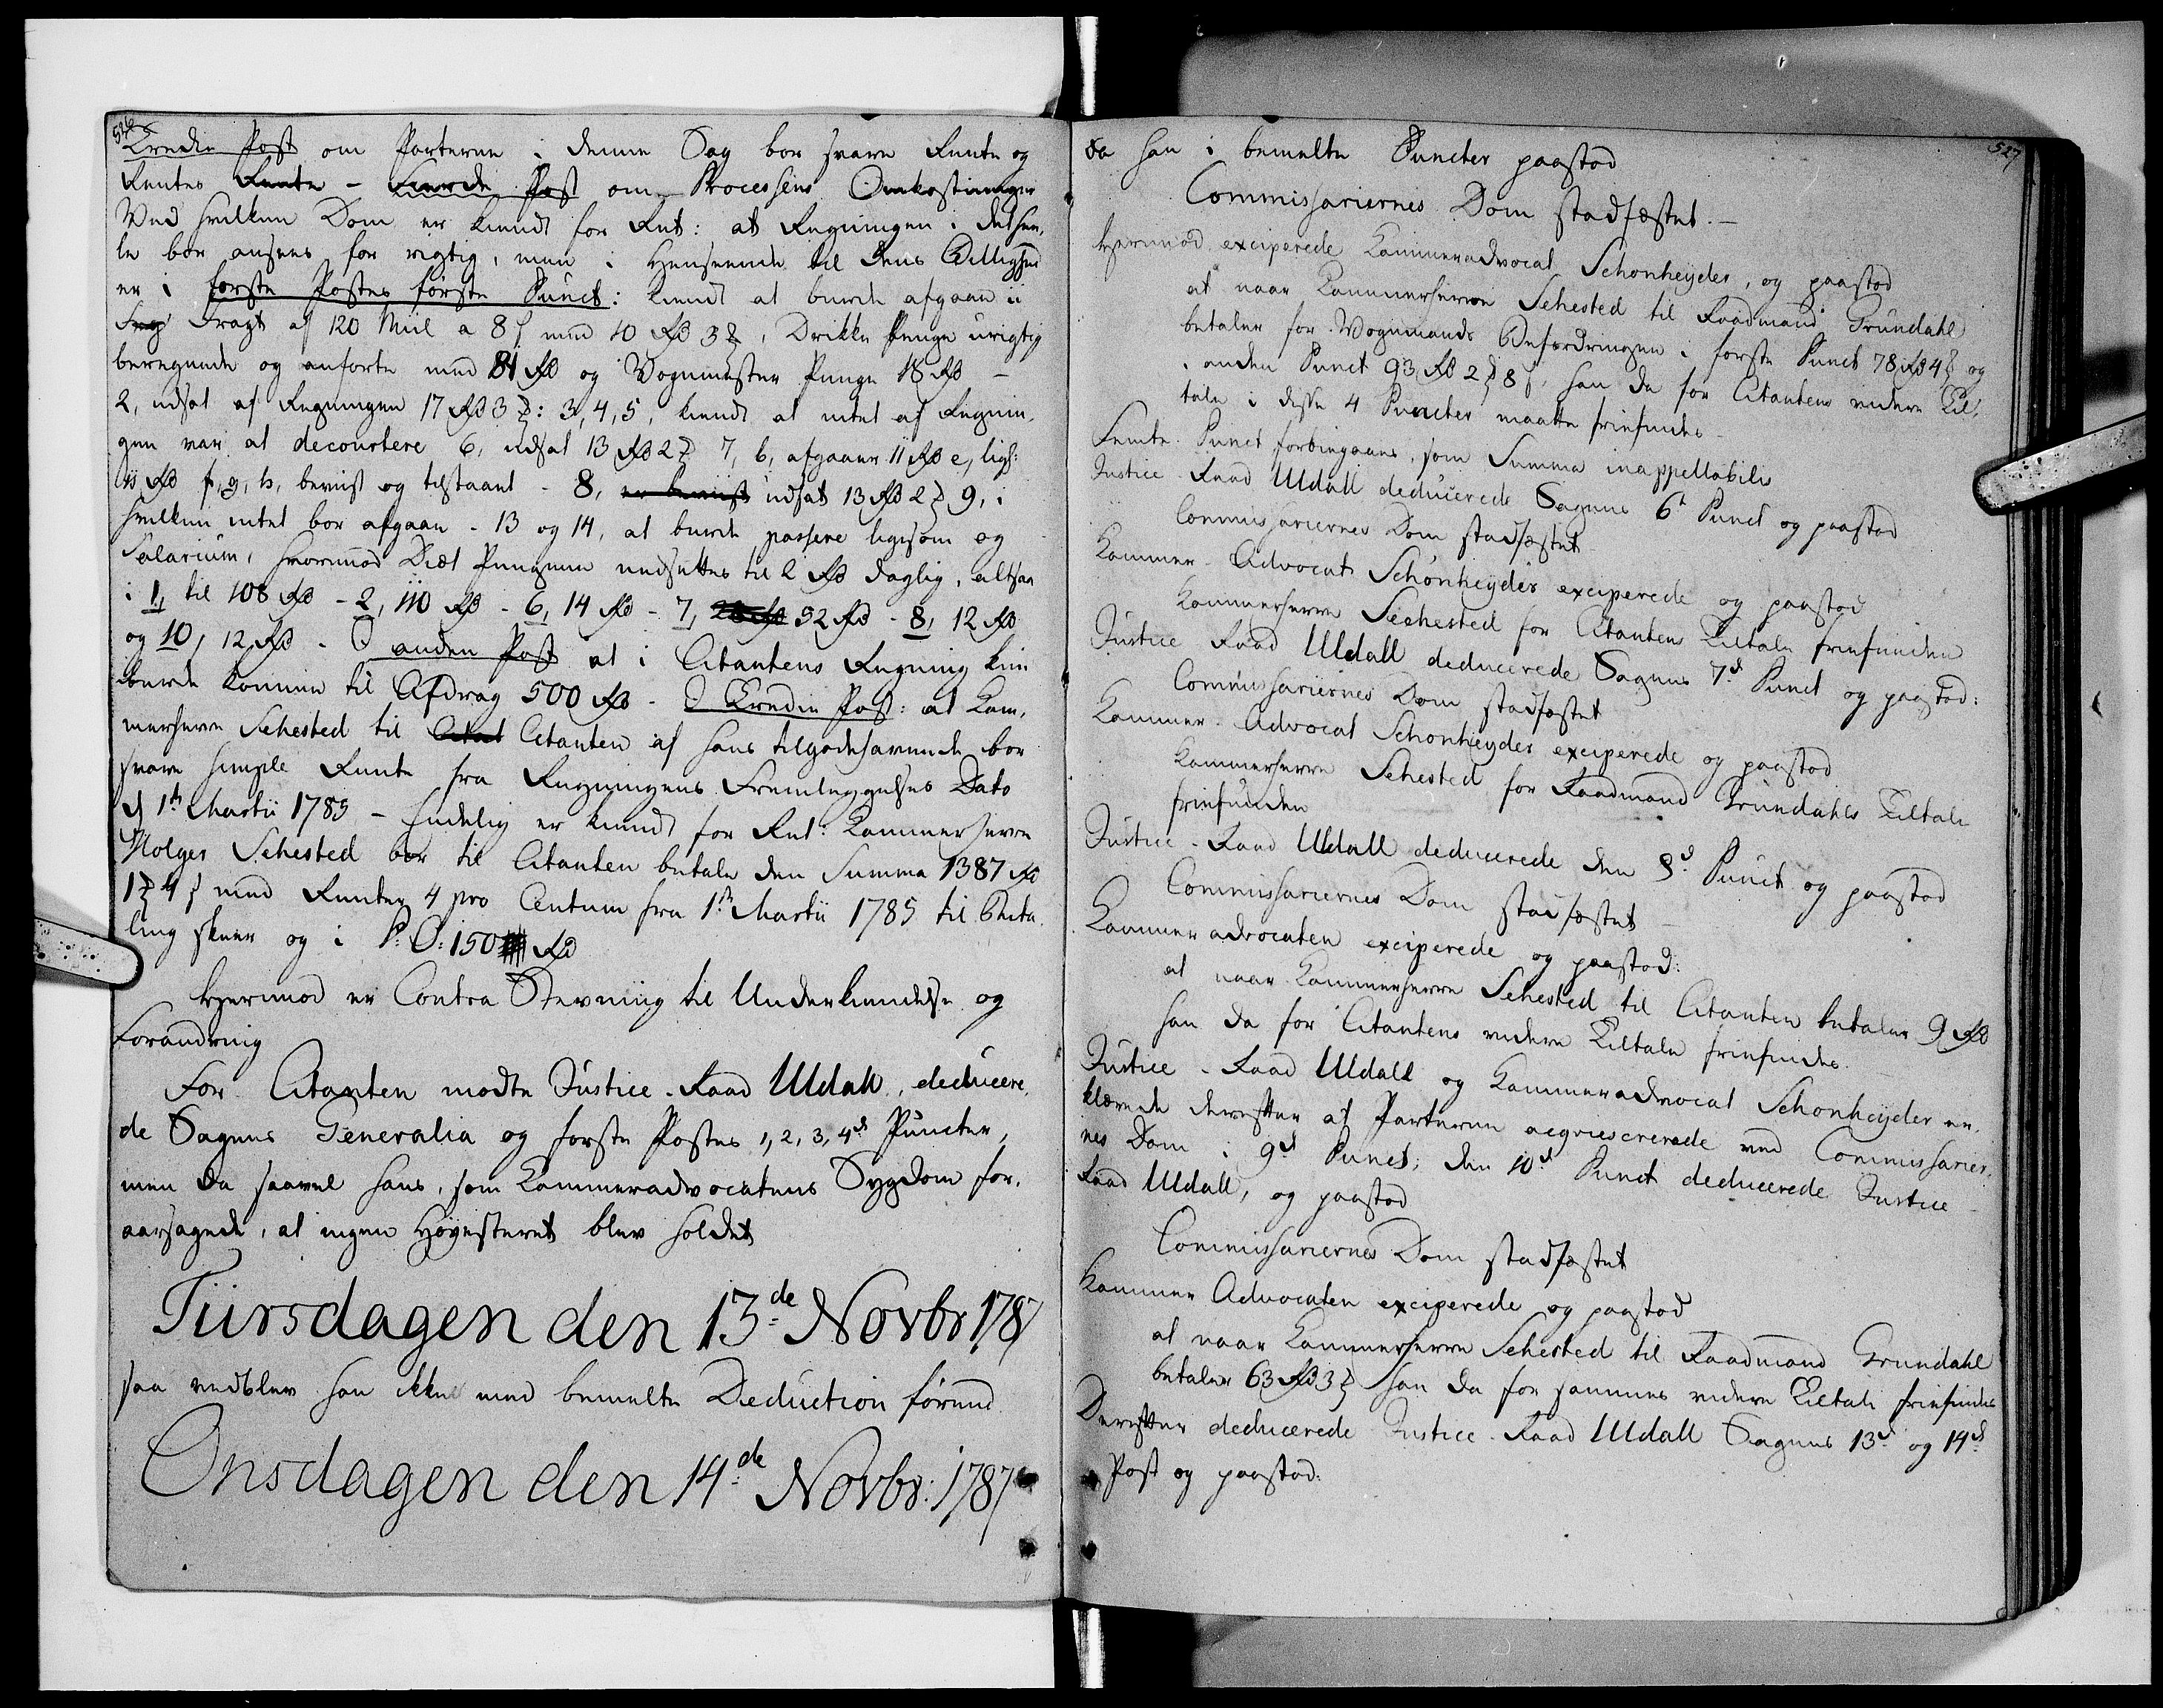 526
Tredie Post om Parterne i denne Sag bør svare Rente og
Rentes Rente - Fierde Post om Processens Omkostninger
Ved hvilken Dom er kiendt for Ret: at Regningen i det hee-
le bør ansees for rigtig, men i Henseende til dens Billighed
er i første Postes første Punct: kiendt at burde afgaae ii
Fragt af 120 Miil a 8 s med 10 Rd 3 mk, Drikke Penge urigtig
beregnede og anførte med 81 Rd og Vognmester Penge 18 Rd -
2, udsat af Regningen 17 Rd 3 mk: 3, 4, 5, kiendt at intet af Regnin-
gen var at decourtere 6, udsat 13 Rd 2 mk 7, b, afgaaer 11 Rd e, lige
11 Rd f, g, h, beviist og tilstaaet - 8, er beviist udsat 13 Rd 2 mk 9, i
hvilken intet bør afgaae - 13 og 14, at burde passere ligesom og
Salarium, hvorimod Diæt Pengene nedsettes til 2 Rd daglig, altsaa
i 1, til 108 Rd - 2, 110 Rd - 6, 14 Rd - 7, 32 Rd - 8, 12 Rd
og 10, 12 Rd - I anden Post at i Citantens Regning kun
burde komme til Afdrag 500 Rd - I Tredie Post: at Kam-
merherre Sehested til Citant Citanten af hans tilgodehavende bør
svare simple Rente fra Regningens Fremleggelses Dato
d 1te Martii 1785 - Endelig er kiendt for Ret: Kammerherre
Holger Sehested bør til Citanten betale den Summa 1387 Rd
1 mk 4 s med Renter 4 pro Centum fra 1te Martii 1785 til Beta-
ling skeer og i P: O: 150 Rd
Hermod er Contra Stevning til Underkiendelse og
Forandring
For Citanten mødte Justice-Raad Uldall, deducere-
de Sagens Generalia og første Postes 1, 2, 3, 4de Puncter,
men da saavel hans, som Kammeradvocatens Sygdom for-
aarsagede, at ingen Høyesteret blev holdet
Tiirsdagen den 13de Novbr 1787
saa vedblev han ikke med bemelte Deduction førend
Onsdagen den 14de Novbr: 1787
527
da han i bemelte Puncter paastod
Commissariernes Dom stadfæstet. -
Hermod exciperede Kammeradvocat Schønheyder, og paastod
at naar Kammerherre Sehested til Raadmand Grundahl
betaler for Vognmands Befordringen i første Punct 78 Rd 4 mk og
i anden Punct 93 Rd 2 mk 8 s, han da for Citantens videre Til-
tale i disse 4 Puncter maatte friefindes
Femte Punct forbiegaaes, som Summa inappellabilis
Justice-Raad Uldall deducerede Sagens 6te Punct og paastod
Commissariernes Dom stadfæstet
Kammer-Advocat Schønheyder exciperede og paastod
Kammerherre Seehested for Citantens Tiltale friefunden
Justice Raad Uldall deducerede Sagens 7de Punct og paastod:
Commissariernes Dom stadfæstet
Kammer-Advocat Schønheyder exciperede og paastod
Kammerherre Sehested for Raadmand Grundahls Tiltale
friefunden
Justice-Raad Uldall deducerede den 8de Punct og paastod
Commissariernes Dom stadfæstet -
Kammeradvocaten exciperede og paastod:
at naar Kammerherre Sehested til Citanten betaler 9 Rd
han da for Citantens videre Tiltale friefindes.
Justice-Raad Uldall og Kammeradvocat Schønheyder er-
klærede derefter at Parterne acqviescerede ved Commissarier-
nes Dom i 9de Punct; den 10de Punct deducerede Justice
Raad Uldall, og paastod
Commissariernes Dom stadfæstet
Kammer Advocaten exciperede og paastod
at naar Kammerherre Sehested til Raadmand Grundahl
betaler 63 Rd 3 mk han da for sammes videre Tiltale friefindes
Derefter deducerede Justice-Raad Uldall Sagens 13de og 14de
Post og paastod: